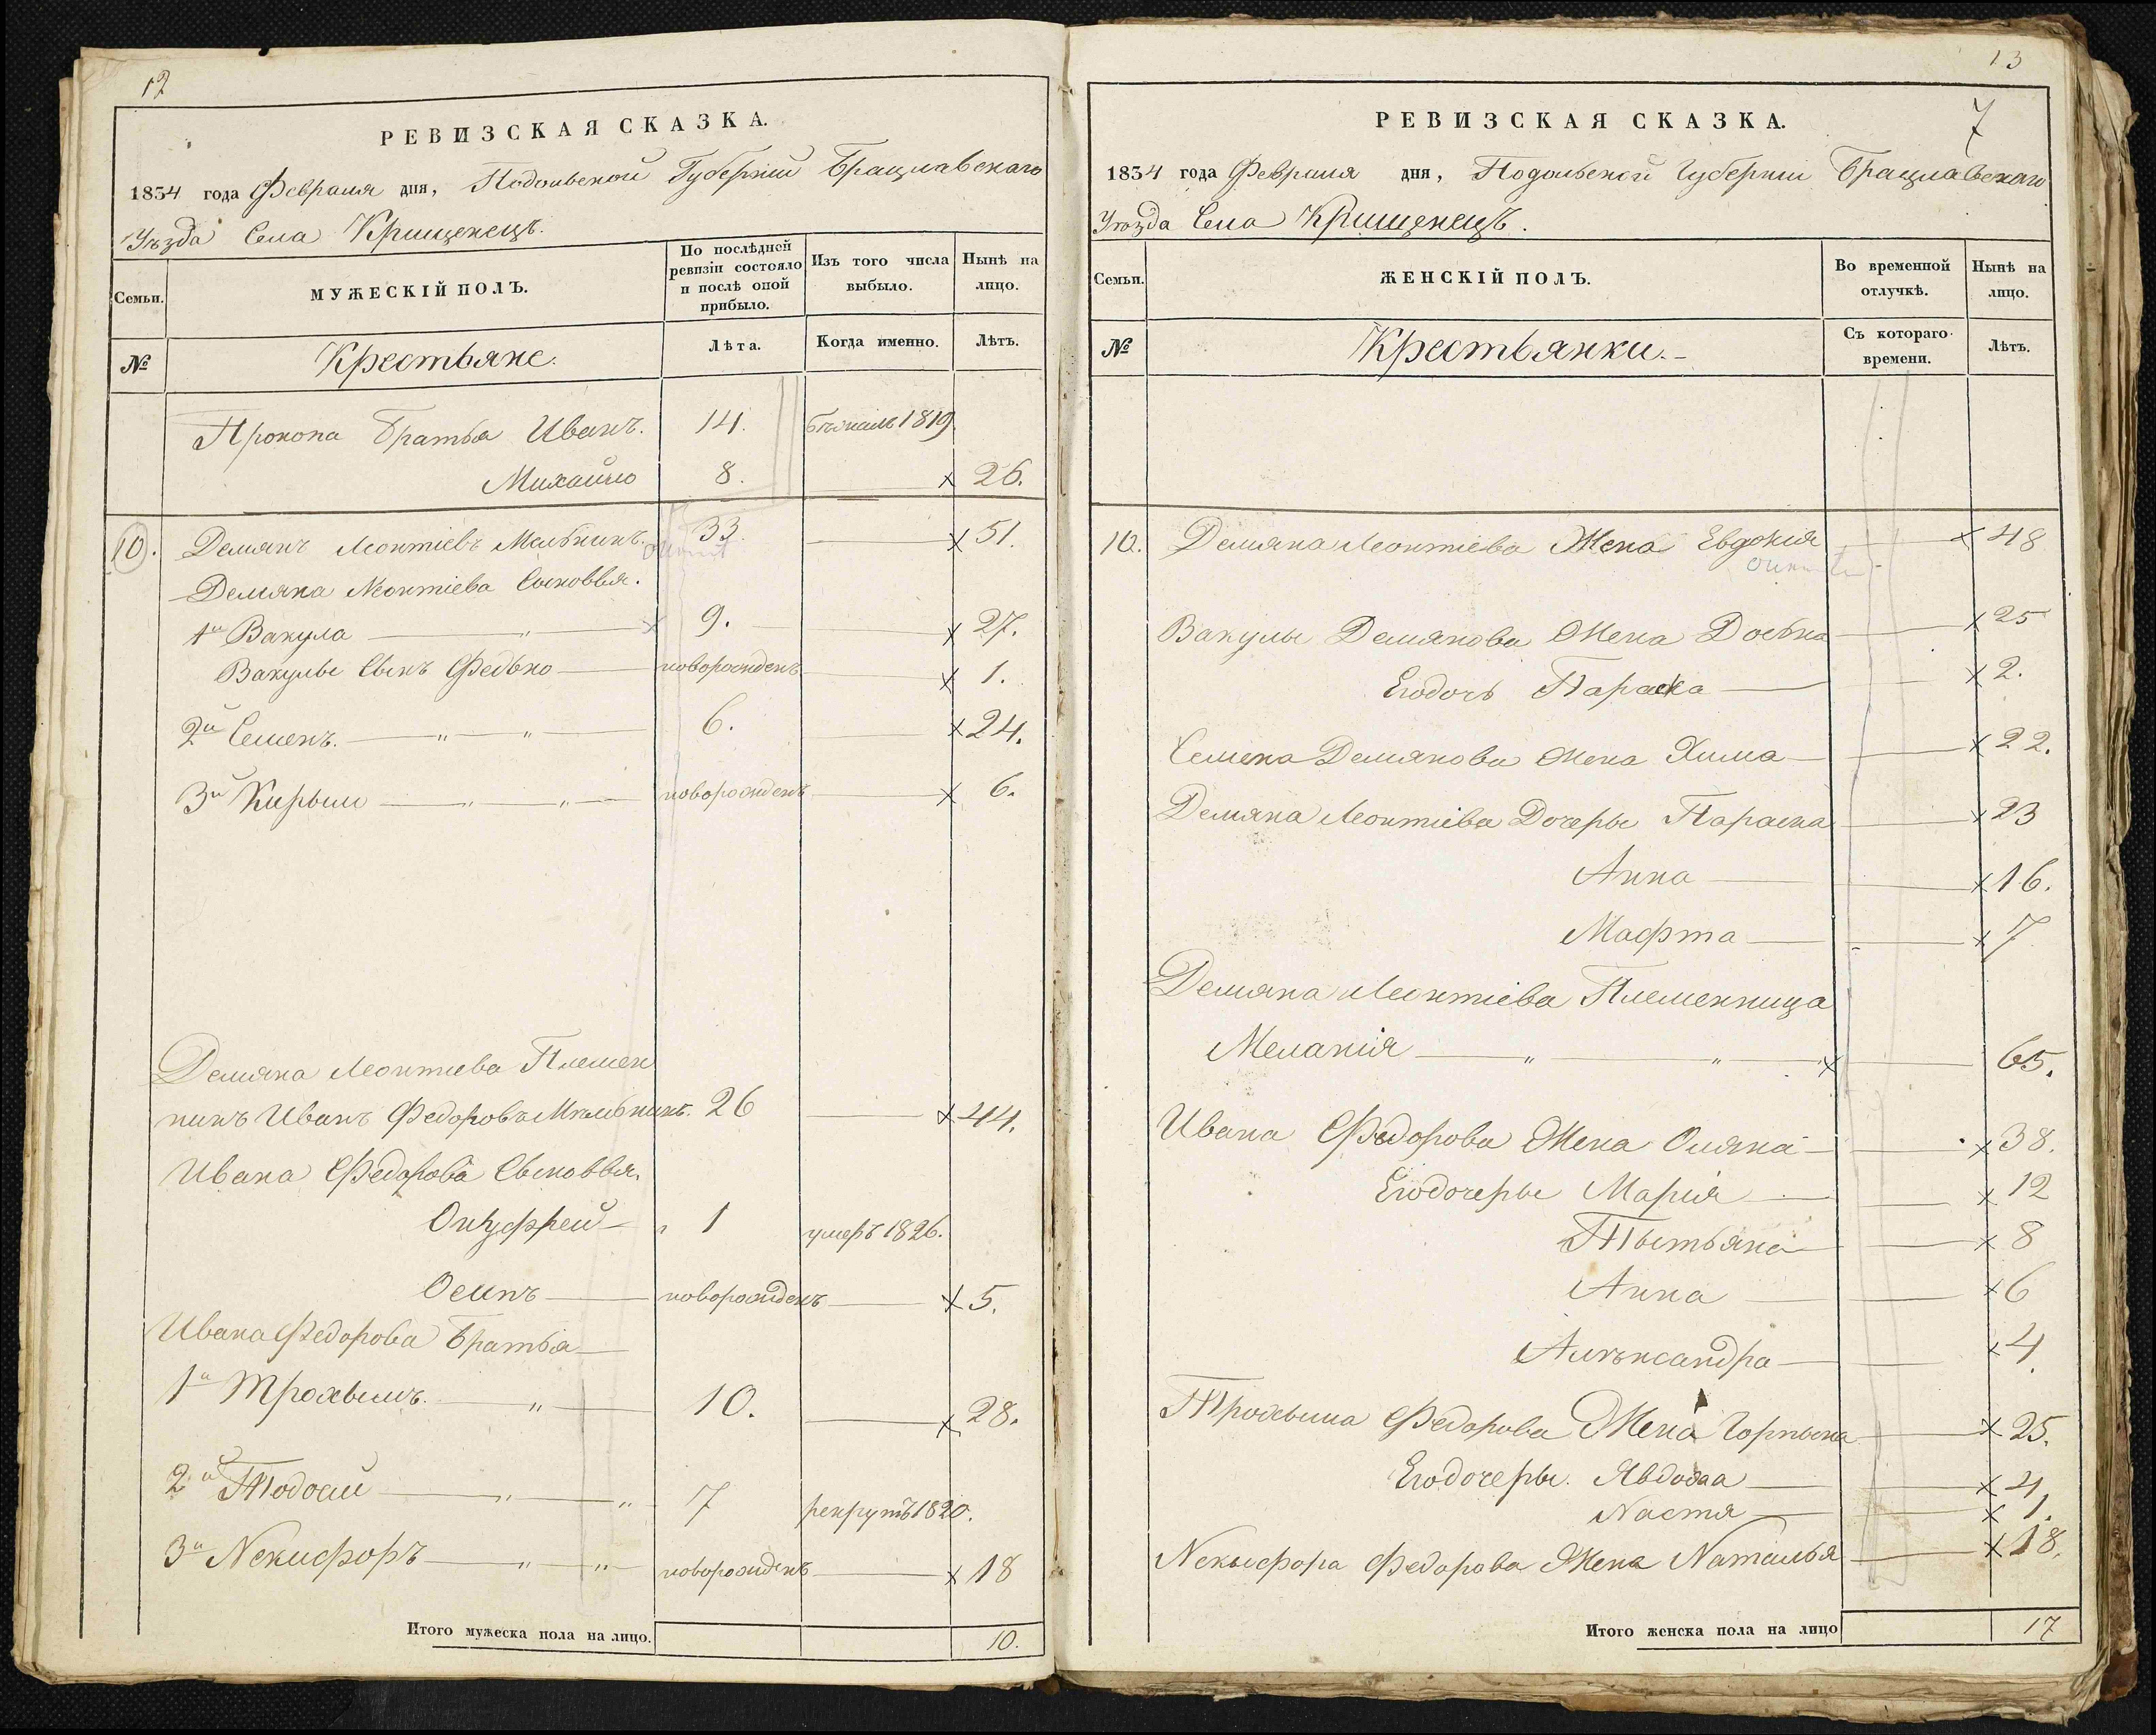 12
РЕВИЗСКАЯ СКАЗКА.
1834 года Февраля дня, Подольской Губерніи Брацлавскаго
Уѣзда Села Крищенецъ.
Семьи.
МУЖЕСКІЙ ПОЛЪ.
По послѣдней ревизіи состояло и послѣ оной прибыло.
Изъ того числа выбыло.
Нынѣ на лицо.
№
Крестьяне.
Лѣта.
Когда именно.
Лѣтъ.
Прокопа Братья Иванъ. 14. бѣжалъ 1819.
Михайло 8. x 26.
10. Демянъ Леонтіевъ Мельникъ. 33. x 51.
Демяна Леонтіева Сыновья.
1й Вакула " x 9. x 27.
Вакулы Сынъ Федько новорожденъ x 1.
2й Семенъ. " " 6. x 24.
3й Кирыло " " новорожденъ x 6.
Демяна Леонтиева Племен
никъ Иванъ Федоровъ Мельникъ. 26 x 44.
Ивана Федорова Сыновья.
Онуфрей 1 умеръ 1826.
Осипъ новорожденъ x 5.
Ивана Федорова Братья
1й Трохымъ. " 10. x 28.
2й Тодосий " " 7 рекрутъ 1820.
3й Некифоръ " " новорожденъ x 18
Итого мужеска пола на лицо. 10.
13
7
РЕВИЗСКАЯ СКАЗКА.
1834 года Февраля дня, Подольской Губерніи Брацлавскаго
Уѣзда Села Крищенецъ.
Семьи.
ЖЕНСКІЙ ПОЛЪ.
Во временной отлучкѣ.
Нынѣ на лицо.
№
Крестьянки.
Съ котораго времени.
Лѣтъ.
10. Демяна Леонтіева Жена Евдокия x 48
Вакулы Демянова Жена Доська x 25
Егодочь Параска x 2.
Семена Демянова Жена Хима x 22.
Демяна Леонтиева Дочеры Параска x 23
Анна x 16.
Мафта x 7
Демяна Леонтіева Племенница
Меланія " " x 65.
Ивана Федорова Жена Оляна x 38.
Егодочеры Марія x 12
Тытьяна x 8
Анна x 6
Алѣксандра x 4.
Трохыма Федорова Жена Горпына x 25.
Егодочеры. Явдоха x 4
Настя x 1.
Некыфора Федорова Жена Наталья x 18.
Итого женска пола на лицо 17